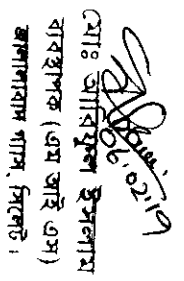 06.02.19
মোঃ ইসলাম
ব্যবস্থাপক (এম আই এস)
জালালাবাদ গ্যাস, সিলেট।